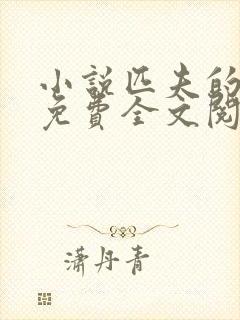 小說匹夫的
免費全文閱
瀟丹青